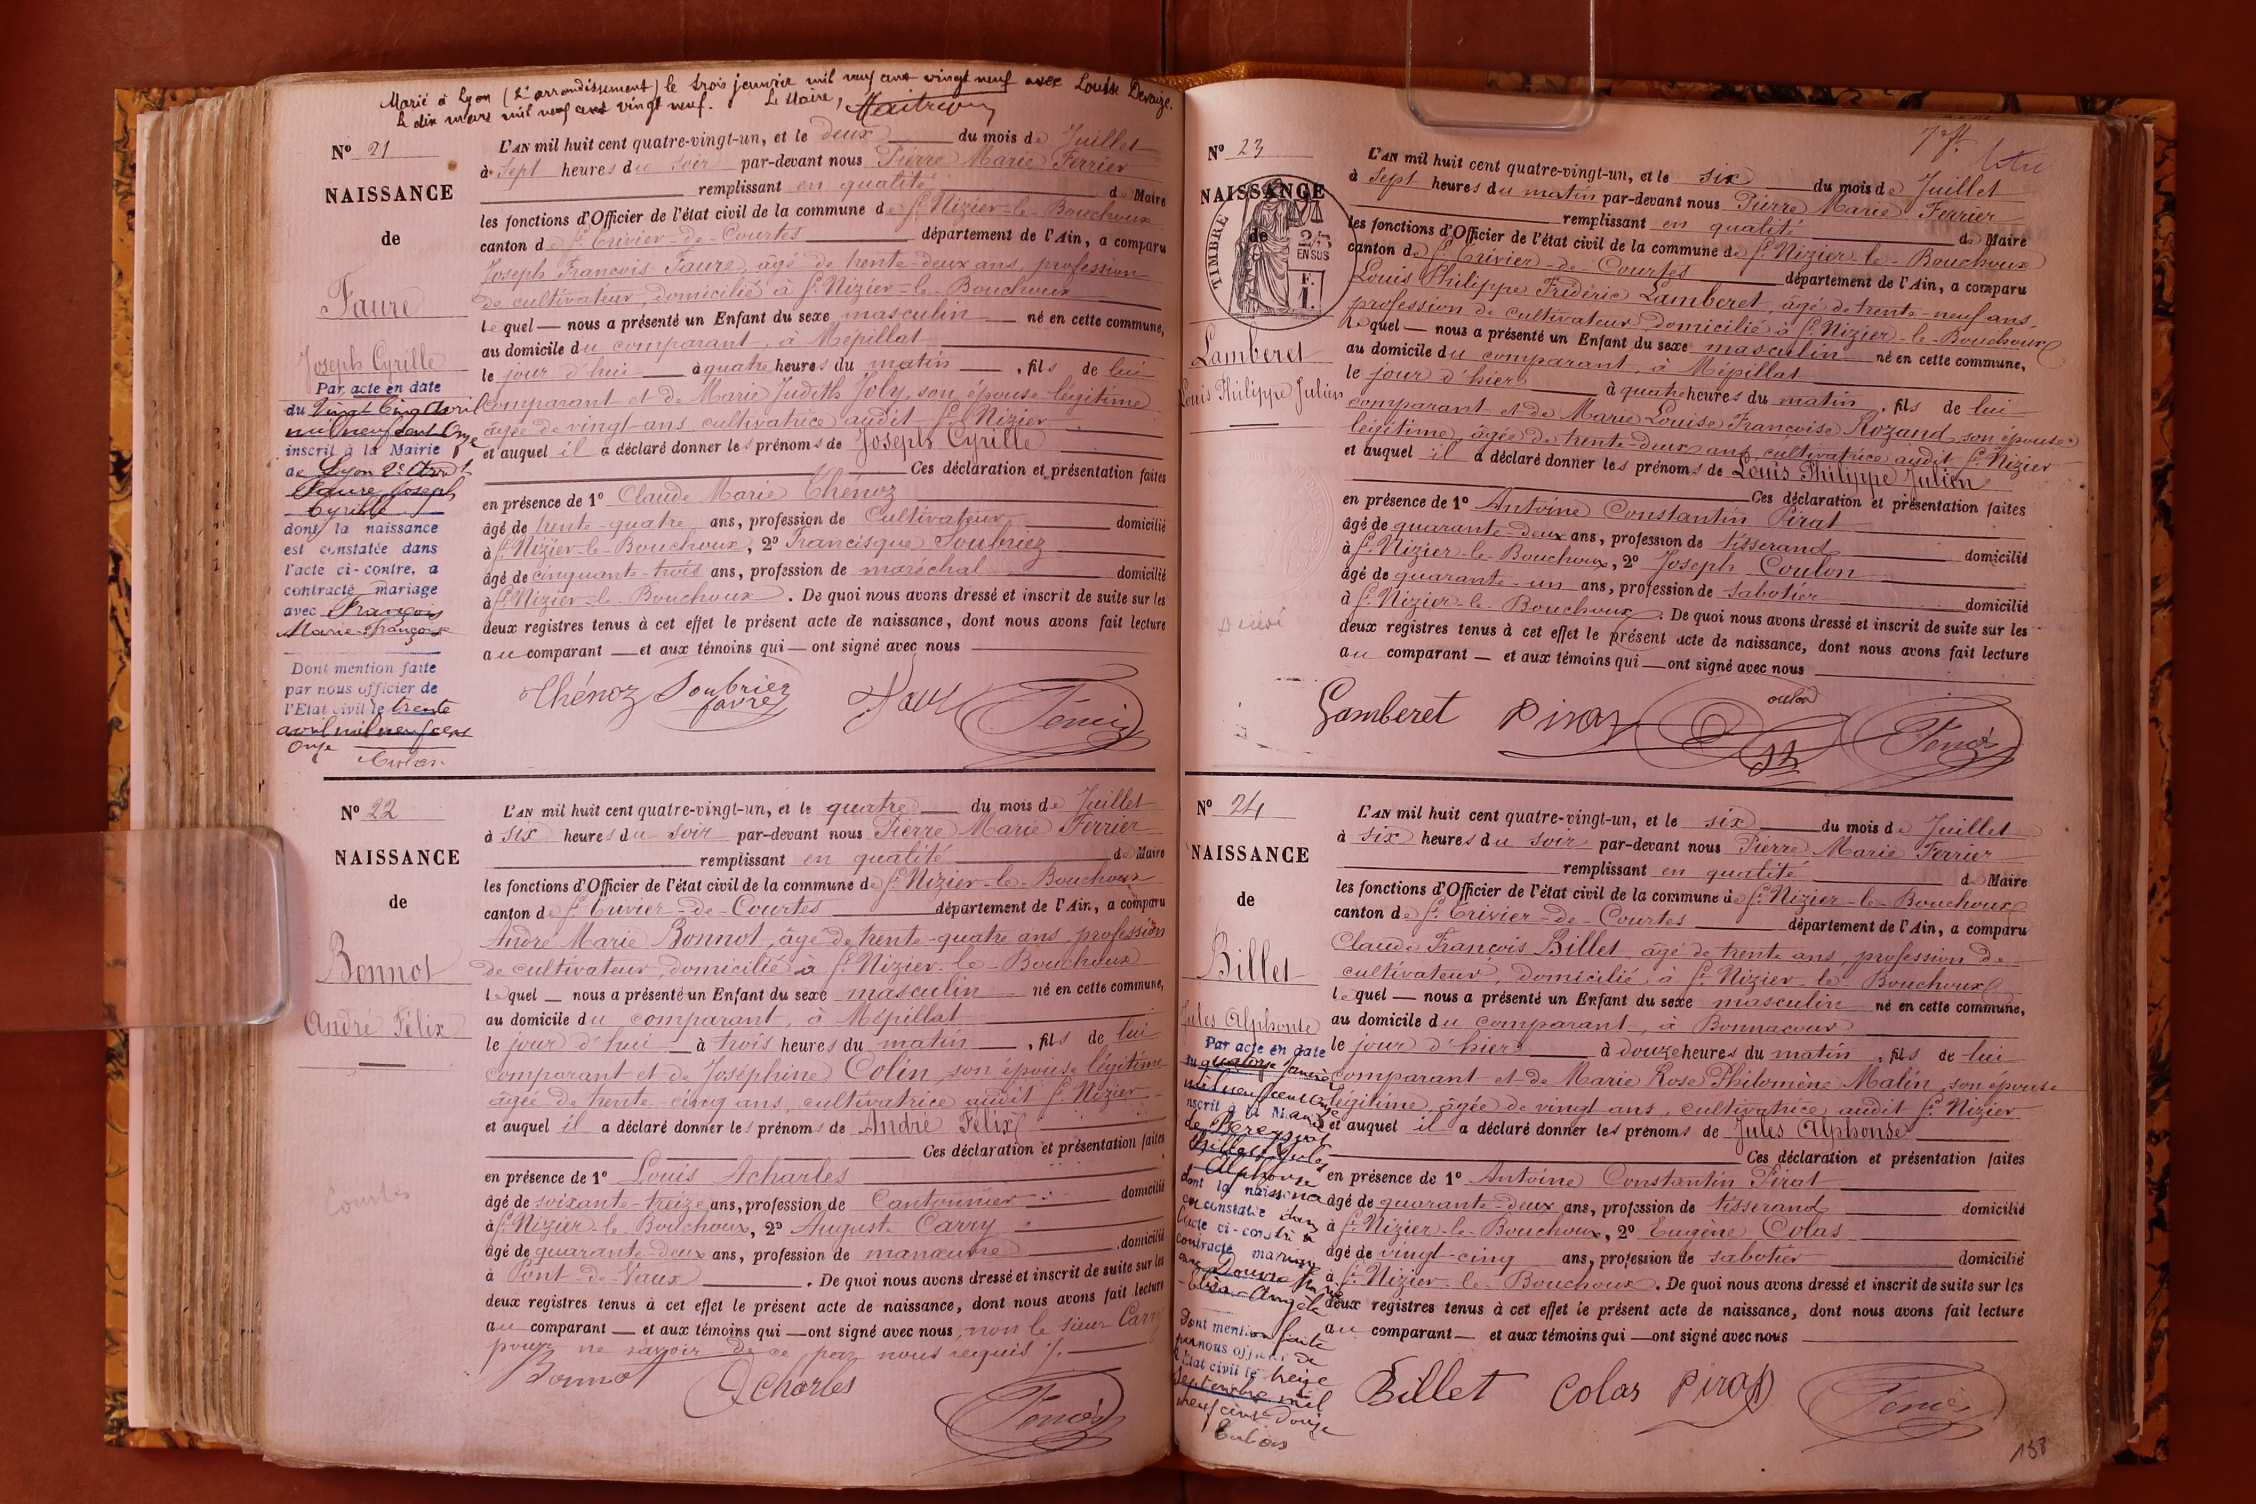 Marié à Lyon (2e arrondissement) le trois janvier mil neuf cent vingt neuf avec Louise
le dix mars mil neuf cent vingt neuf. Le Maire,
No 21
NAISSANCE
de
Faure
Joseph Cyrille
Par acte en date
du Vingt Cinq Avril
mil neuf cent Onze
inscrit à la Mairie
de Lyon 2e Arrd
Faure Joseph
Cyrille
dont la naissance
est constatée dans
l'acte ci-contre, a
contracté mariage
avec François
Marie Françoise
Dont mention faite
par nous officier de
l'Etat civil le trente
avril mil neuf cent
Onze
L'AN mil huit cent quatre-vingt-un, et le deux du mois de Juillet
à Sept heures du soir par-devant nous Pierre Marie Ferrier
remplissant en qualité de Maire
les fonctions d'Officier de l'état civil de la commune de St Nizier-le-Bouchoux
canton de St Trivier-de-Courtes département de l'Ain, a comparu
Joseph François Faure, âgé de trente-deux ans, profession
de cultivateur, domicilié à St Nizier-le-Bouchoux
lequel — nous a présenté un Enfant du sexe masculin né en cette commune,
au domicile du comparant, à Mépillat
le jour d'hui à quatre heures du matin, fils de lui
comparant et de Marie Judith Joly, son épouse légitime
âgée de vingt ans cultivatrice audit St Nizier
et auquel il a déclaré donner les prénoms de Joseph Cyrille
Ces déclaration et présentation faites
en présence de 1o Claude Marie Chénoz
âgé de trente-quatre ans, profession de Cultivateur domicilié
à St Nizier-le-Bouchoux, 2o Francisque Soubriez
âgé de cinquante-trois ans, profession de maréchal domicilié
à St Nizier-le-Bouchoux. De quoi nous avons dressé et inscrit de suite sur les
deux registres tenus à cet effet le présent acte de naissance, dont nous avons fait lecture
au comparant — et aux témoins qui — ont signé avec nous
Chénoz Soubriez
No 22
NAISSANCE
de
Bonnot
André Félix
Courtes
L'AN mil huit cent quatre-vingt-un, et le quatre du mois de Juillet
à six heures du soir par-devant nous Pierre Marie Ferrier
remplissant en qualité de Maire
les fonctions d'Officier de l'état civil de la commune de St Nizier-le-Bouchoux
canton de St Trivier-de-Courtes département de l'Ain, a comparu
André Marie Bonnot, âgé de trente-quatre ans, profession
de cultivateur, domicilié à St Nizier-le-Bouchoux
lequel — nous a présenté un Enfant du sexe masculin né en cette commune,
au domicile du comparant, à Mépillat
le jour d'hui à trois heures du matin, fils de lui
comparant et de Joséphine Colin, son épouse légitime
âgée de trente-cinq ans, cultivatrice audit St Nizier
et auquel il a déclaré donner les prénoms de André Félix
Ces déclaration et présentation faites
en présence de 1o Louis Acharles
âgé de soixante-treize ans, profession de Cantonnier domicilié
à St Nizier-le-Bouchoux, 2o Auguste Carry
âgé de quarante-deux ans, profession de manœuvre domicilié
à Pont-de-Vaux. De quoi nous avons dressé et inscrit de suite sur les
deux registres tenus à cet effet le présent acte de naissance, dont nous avons fait lecture
au comparant — et aux témoins qui — ont signé avec nous, non le sieur Carry
pour ne savoir de ce par nous requis
Bonnot Acharles
No 23
NAISSANCE
de
TIMBRE
2/5
EN SUS
F.
1.
Lamberet
Louis Philippe Julien
L'AN mil huit cent quatre-vingt-un, et le six du mois de Juillet
à sept heures du matin par-devant nous Pierre Marie Ferrier
remplissant en qualité de Maire
les fonctions d'Officier de l'état civil de la commune de St Nizier-le-Bouchoux
canton de St Trivier-de-Courtes département de l'Ain, a comparu
Louis Philippe Frédéric Lamberet, âgé de trente-neuf ans,
profession de cultivateur, domicilié à St Nizier-le-Bouchoux
lequel — nous a présenté un Enfant du sexe masculin né en cette commune,
au domicile du comparant, à Mépillat
le jour d'hier à quatre heures du matin, fils de lui
comparant et de Marie Louise Françoise Rozand, son épouse
légitime, âgée de trente-deux ans, cultivatrice audit St Nizier
et auquel il a déclaré donner les prénoms de Louis Philippe Julien
Ces déclaration et présentation faites
en présence de 1o Antoine Constantin Pirat
âgé de quarante-deux ans, profession de tisserand domicilié
à St Nizier-le-Bouchoux, 2o Joseph Coulon
âgé de quarante-un ans, profession de sabotier domicilié
à St Nizier-le-Bouchoux. De quoi nous avons dressé et inscrit de suite sur les
deux registres tenus à cet effet le présent acte de naissance, dont nous avons fait lecture
au comparant — et aux témoins qui — ont signé avec nous
Lamberet Pirat
No 24
NAISSANCE
de
Billet
Jules Alphonse
Par acte en date
du quatorze Janvier
mil neuf cent Onze
inscrit à la Mairie
de
Billet Jules
Alphonse
dont la naissance
est constatée dans
l'acte ci-contre a
contracté mariage
avec
Angèle
Dont mention faite
par nous officier de
l'Etat civil le treize
Septembre mil
neuf cent Douze
L'AN mil huit cent quatre-vingt-un, et le six du mois de Juillet
à six heures du soir par-devant nous Pierre Marie Ferrier
remplissant en qualité de Maire
les fonctions d'Officier de l'état civil de la commune de St Nizier-le-Bouchoux
canton de St Trivier-de-Courtes département de l'Ain, a comparu
Claude François Billet, âgé de trente ans, profession de
cultivateur, domicilié à St Nizier-le-Bouchoux
lequel — nous a présenté un Enfant du sexe masculin né en cette commune,
au domicile du comparant, à Bonnacour
le jour d'hier à douze heures du matin, fils de lui
comparant et de Marie Rose Philomène Matin, son épouse
légitime, âgée de vingt ans, cultivatrice audit St Nizier
et auquel il a déclaré donner les prénoms de Jules Alphonse
Ces déclaration et présentation faites
en présence de 1o Antoine Constantin Pirat
âgé de quarante-deux ans, profession de tisserand domicilié
à St Nizier-le-Bouchoux, 2o Eugène Colas
âgé de vingt-cinq ans, profession de sabotier domicilié
à St Nizier-le-Bouchoux. De quoi nous avons dressé et inscrit de suite sur les
deux registres tenus à cet effet le présent acte de naissance, dont nous avons fait lecture
au comparant — et aux témoins qui — ont signé avec nous
Billet Colas Pirat
138